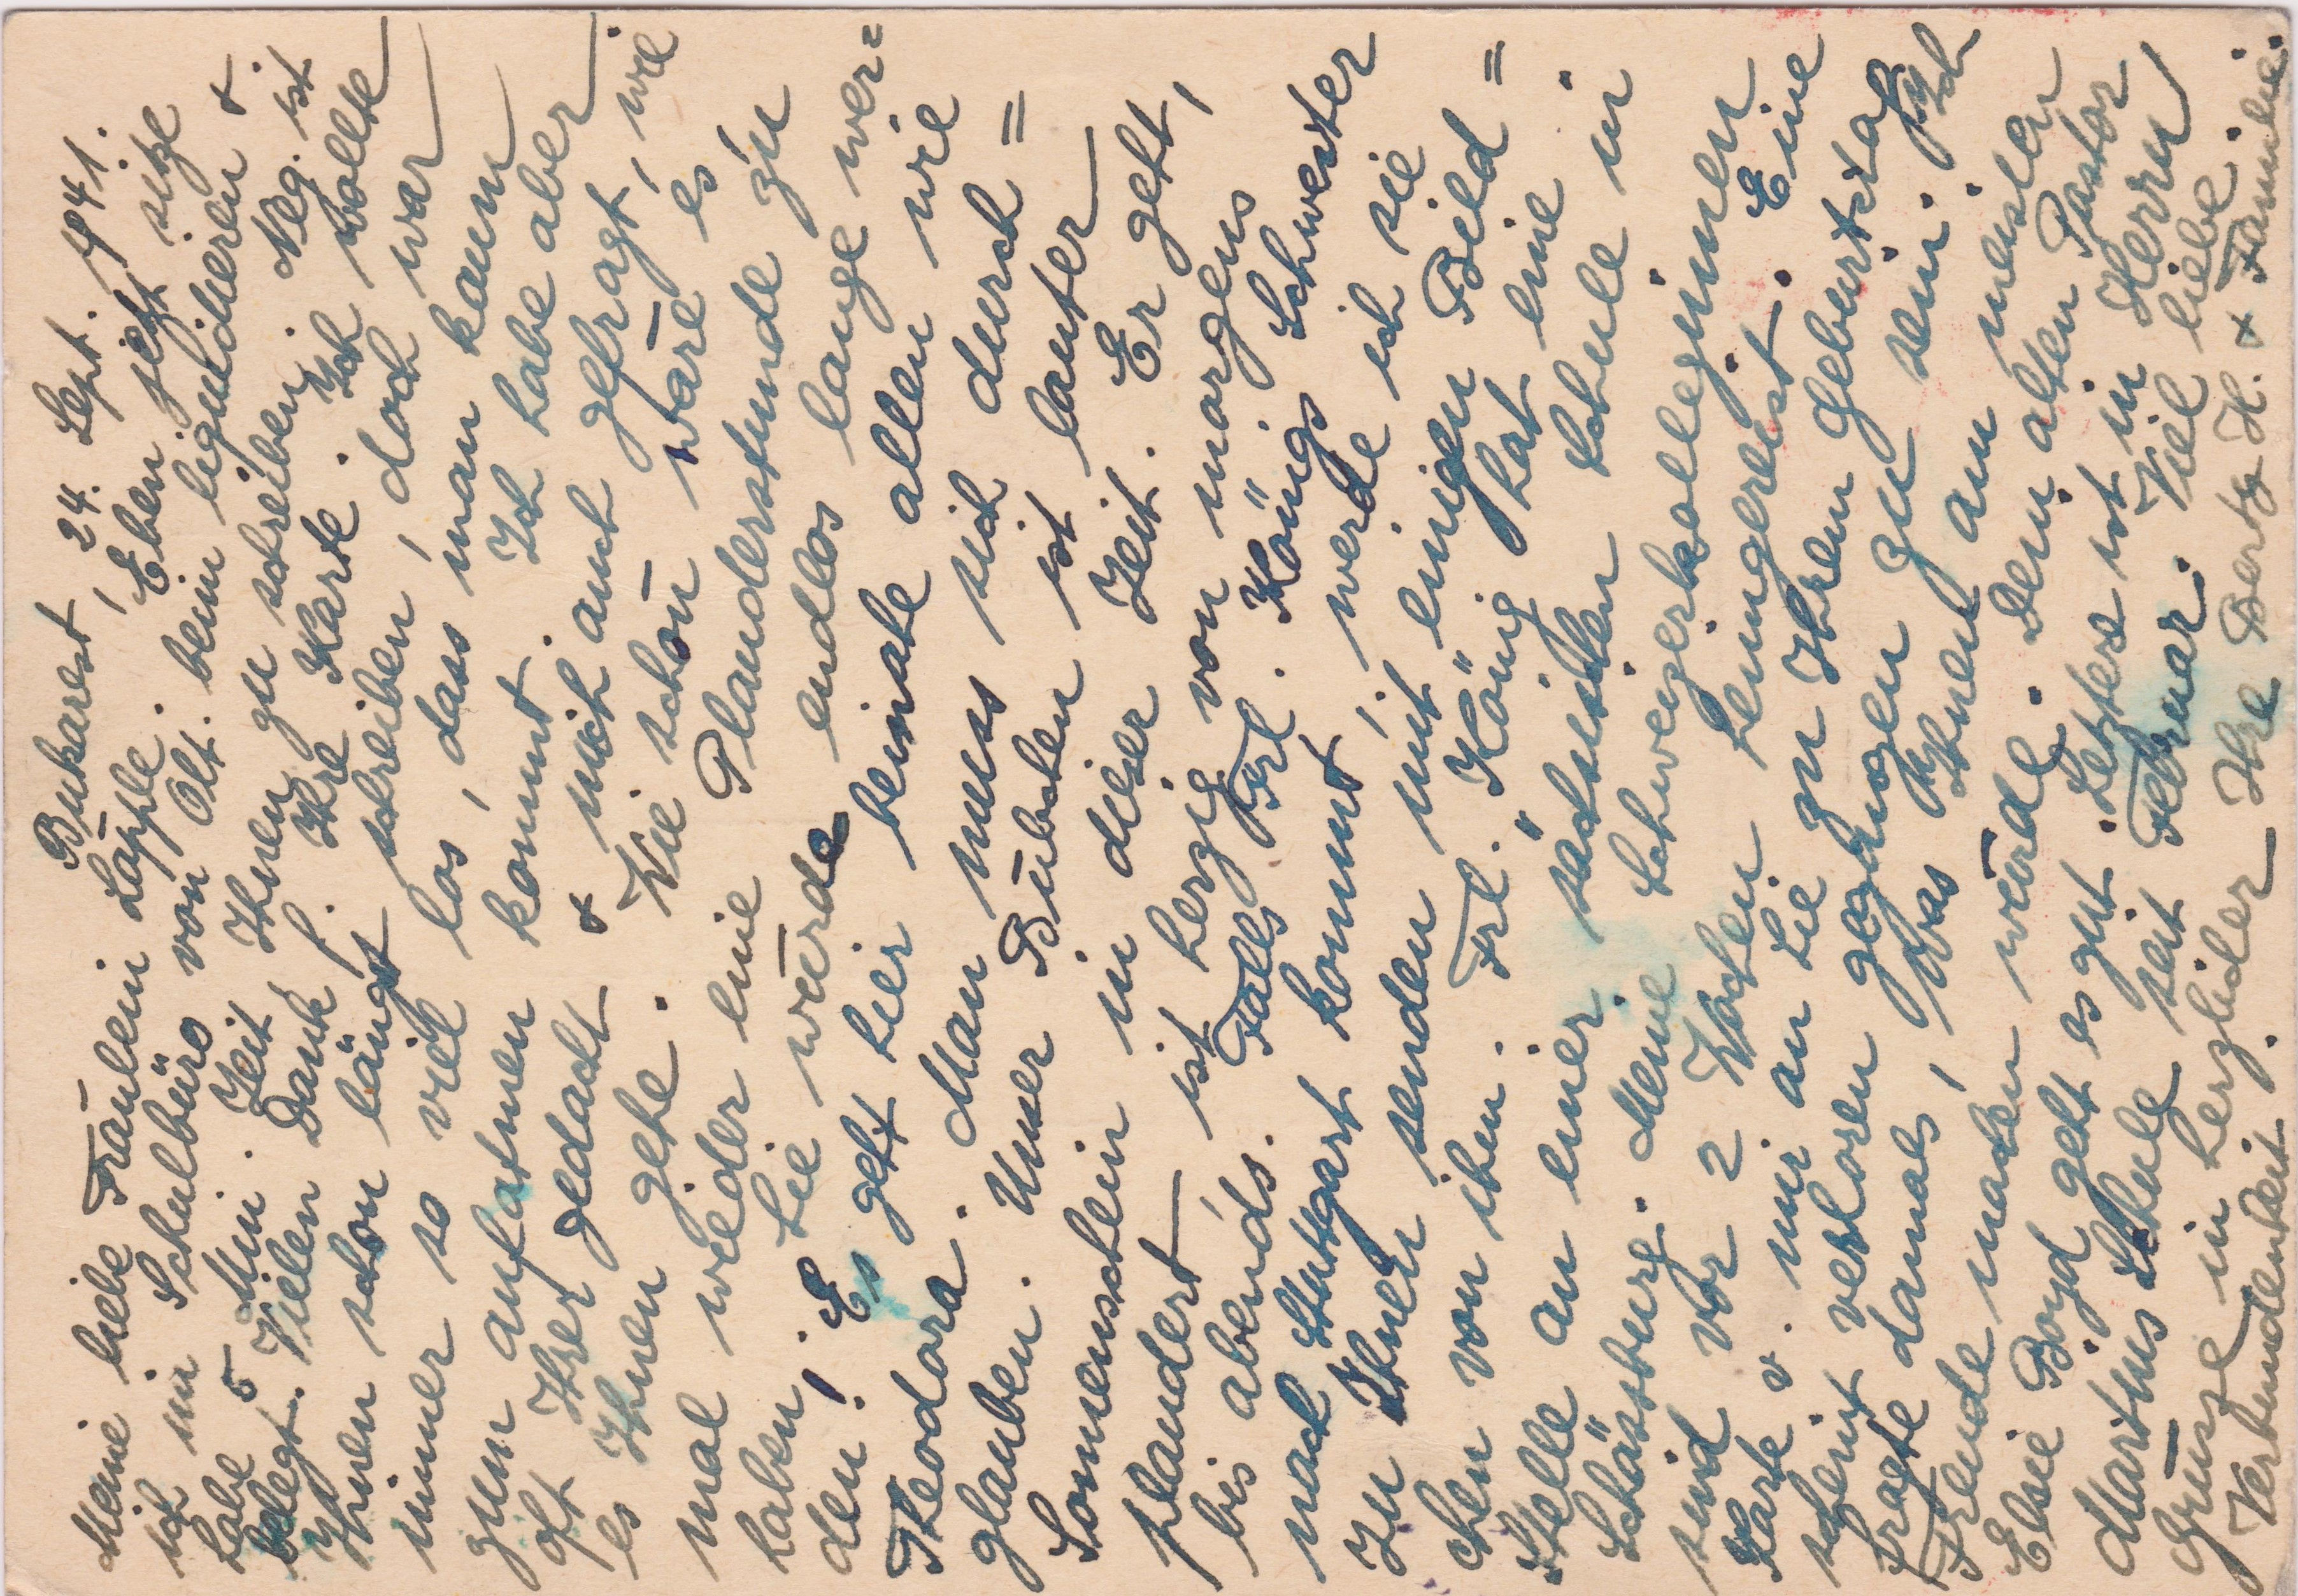 Bukarest, 24. Sept. 1941.
Meine liebe Fräulein Läpple. Eben jetzt sitze
ich im Schulbüro von Olt. beim liquidieren &
habe 5 Min. Zeit Ihnen zu schreiben. Neg. ist
belegt. Vielen Dank f. Ihre Karte. Ich wollte
Ihnen schon längst schreiben, doch war
immer so viel los, dass man kaum
zum aufatmen kommt. Ich habe aber
oft Ihrer gedacht & mich auch gefragt, wie
es Ihnen gehe. Wie schön wäre es
mal wieder eine Plauderstunde zu
haben! Sie würde endlos lange wer=
den! Es geht hier beinahe allen wie
Theodora. Man muss sich durch=
glauben. Unser Bübchen ist lauter
Sonnenschein in dieser Zeit. Er geht,
plaudert ist herzig von morgens
bis abends. Falls Frl. Königs Schwester
nach Stuttgart kommt, werde ich sie
zu Ihnen senden mit einigen Bild=
chen von ihm. Frl. König hat eine
Stelle an einer sächsischen Schule in
Schässburg. Meine Schweizerkolleginnen
sind vor 2 Wochen heimgereist. Eine
Karte v. mir an Sie zu Ihrem Geburtstag
scheint verloren gegangen zu sein. Ich
fragte damals, was Ihnen am meisten
Freude machen würde. Dem alten Pastor
Elsie Boyd geht es gut. Letztere ist in Herrn
Marthus Schule seit Februar. Viel liebe
Grüsse in herzlicher
Verbundenheit. Ihre Berty H. & Familie.